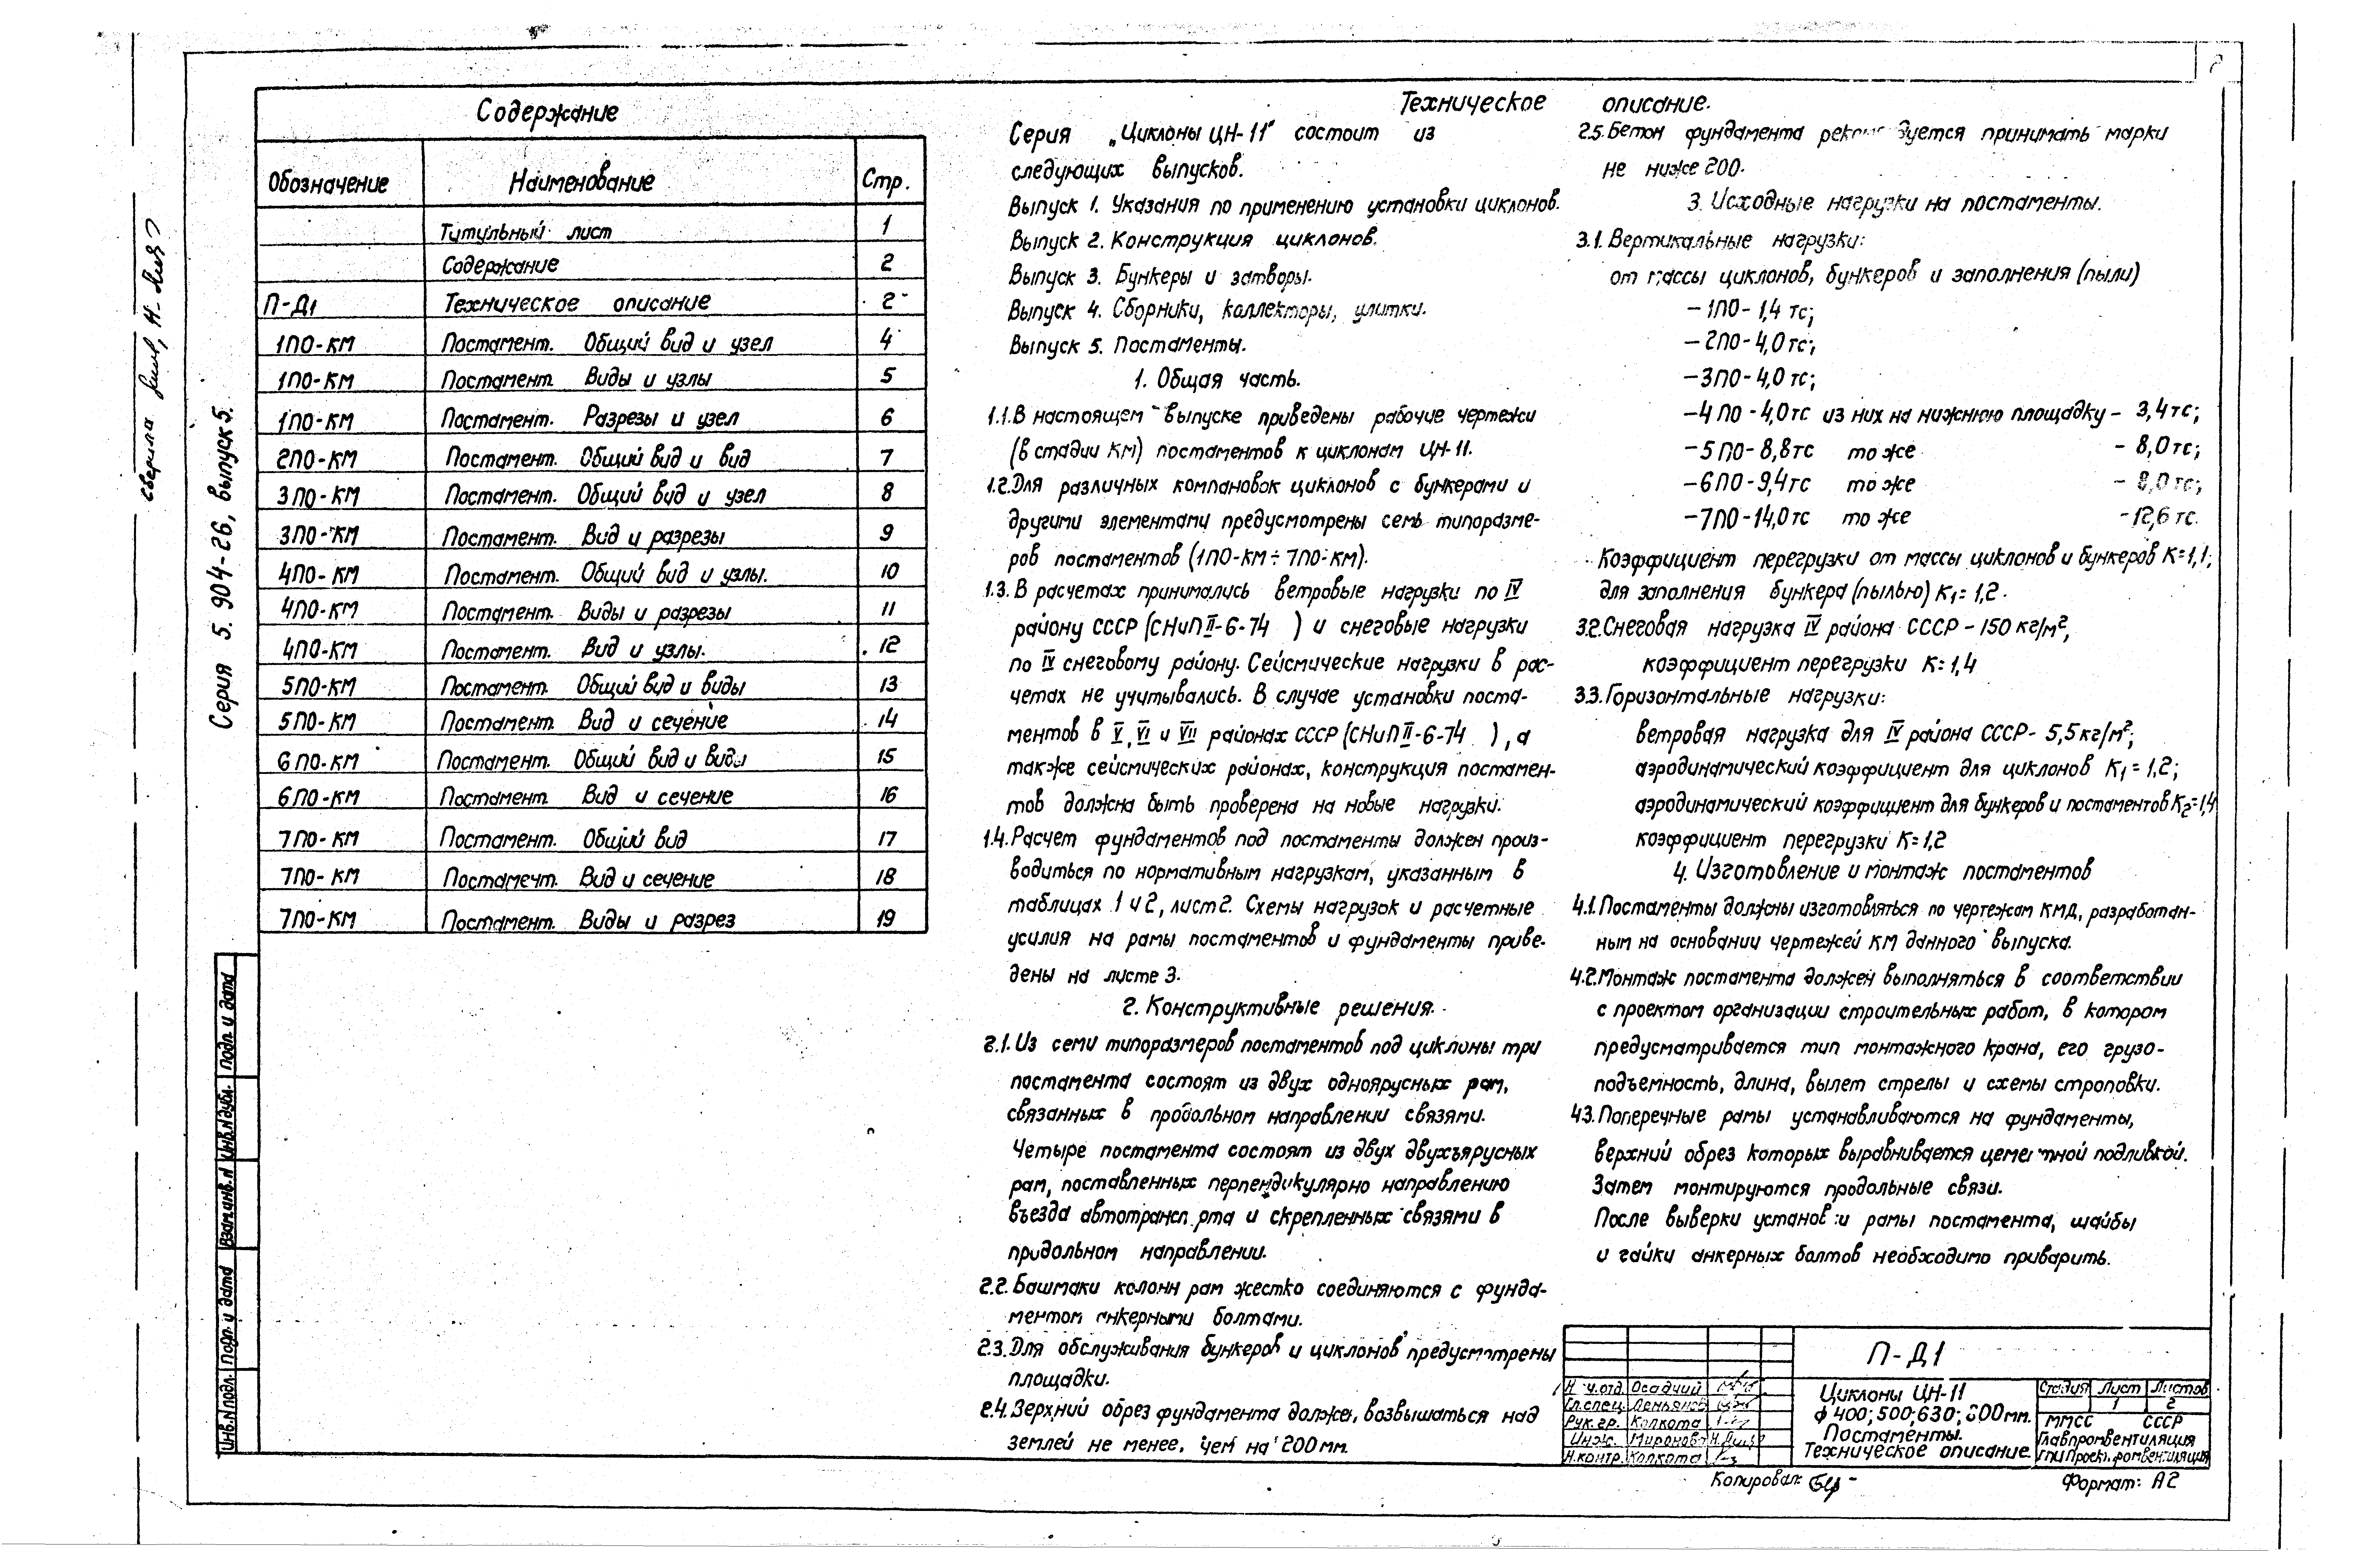 2
Содержание
Обозначение Наименование Стр.
Титульный лист 1
Содержание 2
П-Д1 Техническое описание 2
1ПО-КМ Постамент. Общий вид и узел 4
1ПО-КМ Постамент. Виды и узлы 5
1ПО-КМ Постамент. Разрезы и узел 6
2ПО-КМ Постамент. Общий вид и вид 7
3ПО-КМ Постамент. Общий вид и узел 8
3ПО-КМ Постамент. Вид и разрезы 9
4ПО-КМ Постамент. Общий вид и узлы. 10
4ПО-КМ Постамент. Виды и разрезы 11
4ПО-КМ Постамент. Вид и узлы. 12
5ПО-КМ Постамент. Общий вид и виды 13
5ПО-КМ Постамент. Вид и сечение 14
6ПО-КМ Постамент. Общий вид и виды 15
6ПО-КМ Постамент. Вид и сечение 16
7ПО-КМ Постамент. Общий вид 17
7ПО-КМ Постамент. Вид и сечение 18
7ПО-КМ Постамент. Виды и разрез 19
Серия 5.904-26, выпуск 5.
сверила
Подп. и дата
Инв.N дубл.
Взам.инв.N
Подп. и дата
Инв.N подл.
Техническое описание.
Серия „Циклоны ЦН-11" состоит из
следующих выпусков.
Выпуск 1. Указания по применению установки циклонов.
Выпуск 2. Конструкция циклонов.
Выпуск 3. Бункеры и затворы.
Выпуск 4. Сборники, коллекторы, улитки.
Выпуск 5. Постаменты.
1. Общая часть.
1.1. В настоящем выпуске приведены рабочие чертежи
(в стадии КМ) постаментов к циклонам ЦН-11.
1.2. Для различных компановок циклонов с бункерами и
другими элементами предусмотрены семь типоразме-
ров постаментов (1ПО-КМ÷7ПО-КМ).
1.3. В расчетах принимались ветровые нагрузки по IV
району СССР (СНиП II-6-74 ) и снеговые нагрузки
по IV снеговому району. Сейсмические нагрузки в рас-
четах не учитывались. В случае установки поста-
ментов в V, VI и VII районах СССР (СНиП II-6-74 ), а
также сейсмических районах, конструкция постамен-
тов должна быть проверена на новые нагрузки.
1.4. Расчет фундаментов под постаменты должен произ-
водиться по нормативным нагрузкам, указанным в
таблицах 1 и 2, лист 2. Схемы нагрузок и расчетные
усилия на рамы постаментов и фундаменты приве-
дены на листе 3.
2. Конструктивные решения.
2.1. Из семи типоразмеров постаментов под циклоны три
постамента состоят из двух одноярусных рам,
связанных в продольном направлении связями.
Четыре постамента состоят из двух двухъярусных
рам, поставленных перпендикулярно направлению
въезда автотранспорта и скрепленных связями в
продольном направлении.
2.2. Башмаки колонн рам жестко соединяются с фунда-
ментом анкерными болтами.
2.3. Для обслуживания бункеров и циклонов предусмотрены
площадки.
2.4. Верхний обрез фундамента должен возвышаться над
землей не менее, чем на 200 мм.
2.5. Бетон фундамента рекомендуется принимать марки
не ниже 200.
3. Исходные нагрузки на постаменты.
3.1. Вертикальные нагрузки:
от массы циклонов, бункеров и заполнения (пыли)
-1ПО-1,4 тс;
-2ПО-4,0 тс;
-3ПО-4,0 тс;
-4ПО-4,0 тс из них на нижнюю площадку - 3,4 тс;
-5ПО-8,8 тс то же - 8,0 тс;
-6ПО-9,4 тс то же - 8,0 тс;
-7ПО-14,0 тс то же -12,6 тс.
Коэффициент перегрузки от массы циклонов и бункеров К=1,1;
для заполнения бункера (пылью) К1=1,2.
3.2. Снеговая нагрузка IV района СССР - 150 кг/м²,
коэффициент перегрузки К=1,4
3.3. Горизонтальные нагрузки:
ветровая нагрузка для IV района СССР- 5,5 кг/м²;
аэродинамический коэффициент для циклонов К1=1,2;
аэродинамический коэффициент для бункеров и постаментов К2=1,4
коэффициент перегрузки К=1,2
4. Изготовление и монтаж постаментов
4.1. Постаменты должны изготовляться по чертежам КМД, разработан-
ным на основании чертежей КМ данного выпуска.
4.2. Монтаж постамента должен выполняться в соответствии
с проектом организации строительных работ, в котором
предусматривается тип монтажного крана, его грузо-
подъемность, длина, вылет стрелы и схемы строповки.
4.3. Поперечные рамы устанавливаются на фундаменты,
верхний обрез которых выравнивается цементной подливкой.
Затем монтируются продольные связи.
После выверки установки рамы постамента, шайбы
и гайки анкерных болтов необходимо приварить.
П-Д1
Н ч.отд. Осадчий
Гл.спец. Демьянов
Рук.гр. Колкота
Инж. Миронова
Н.контр. Колкота
Циклоны ЦН-11
ф 400; 500; 630; 800 мм.
Постаменты.
Техническое описание
Стадия Лист Листов
1 2
ММСС СССР
Главпромвентиляция
ГПИ Проектпромвентиляция
Копировал:
Формат: А2